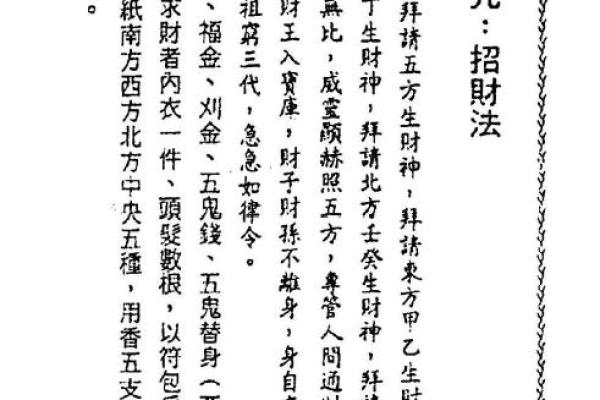 ：招財法
拜請五方生財神，拜請東方甲乙生財
丁生財神，拜請北方壬癸生財神，拜
無比，威靈顯赫照五方，專管人間通
財王入寶庫，財子財孫不離身，身自
祖窮三代，急急如律令。
、福金、刈金、五鬼錢、五鬼替身（
求財者內衣一件、頭髮數根，以符包
紙南方西方北方中央五種，用香五支
。